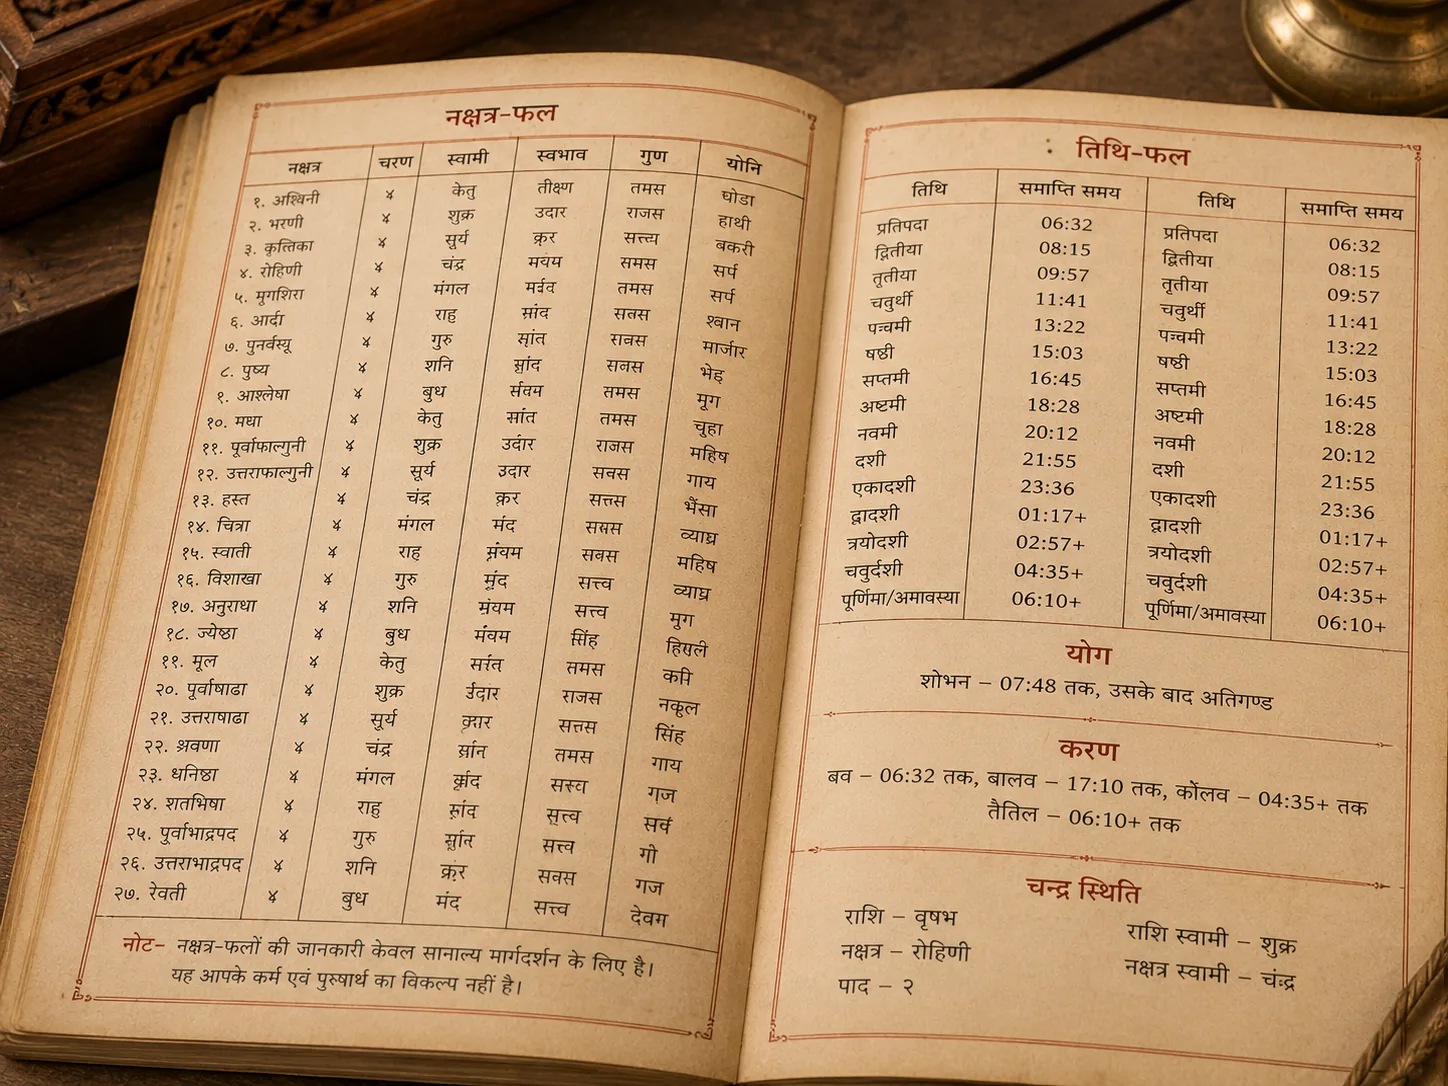 नक्षत्र-फल
नक्षत्र चरण स्वामी स्वभाव गुण योनि
१. अश्विनी ४ केतु तीक्ष्ण तमस घोडा
२. भरणी ४ शुक्र उदार राजस हाथी
३. कृत्तिका ४ सूर्य क्रर बकरी
४. रोहिणी ४ चंद्र समस सर्प
५. मृगशिरा ४ मंगल तमस सर्प
६. आर्दा ४ राह श्वान
७. पुनर्वस्यू ४ गुरु मार्जार
८. पुष्य ४ शनि
१. आश्लेषा ४ बुध तमस मृग
१०. मधा ४ केतु तमस चुहा
११. पूर्वाफाल्गुनी ४ शुक्र उर्दार राजस महिष
१२. उत्तराफाल्गुनी ४ सूर्य उदार गाय
१३. हस्त ४ चंद्र क्रर सत्तस भैंसा
१४. चित्रा ४ मंगल मंद व्याघ्र
१५. स्वाती ४ राह महिष
१६. विशाखा ४ गुरु सत्त्व व्याघ्र
१७. अनुराधा ४ शनि सत्त्व मृग
१८. ज्येष्ठा ४ बुध सिंह
११. मूल ४ केतु तमस कपि
२०. पूर्वाषाढा ४ शुक्र राजस नकूल
२१. उत्तराषाढा ४ सूर्य सत्तस सिंह
२२. श्रवणा ४ चंद्र तमस गाय
२३. धनिष्ठा ४ मंगल गज
२४. शतभिषा ४ राहु सत्त्व
२५. पूर्वाभाद्रपद ४ गुरु सत्त्व गो
२६. उत्तराभाद्रपद ४ शनि गज
२७. रेवती ४ बुध मंद सत्त्व
नोट– नक्षत्र-फलों की जानकारी केवल सानाल्य मार्गदर्शन के लिए है।
यह आपके कर्म एवं पुरुषार्थ का विकल्प नहीं है।
तिथि-फल
तिथि समाप्ति समय तिथि समाप्ति समय
प्रतिपदा 06:32 प्रतिपदा 06:32
द्वितीया 08:15 द्वितीया 08:15
तृतीया 09:57 तृतीया 09:57
चवुर्थी 11:41 चवुर्थी 11:41
पञ्चमी 13:22 पञ्चमी 13:22
षष्ठी 15:03 षष्ठी 15:03
सप्तमी 16:45 सप्तमी 16:45
अष्टमी 18:28 अष्टमी 18:28
नवमी 20:12 नवमी 20:12
दशी 21:55 दशी 21:55
एकादशी 23:36 एकादशी 23:36
द्वादशी 01:17+ द्वादशी 01:17+
त्रयोदशी 02:57+ त्रयोदशी 02:57+
चवुर्दशी 04:35+ चवुर्दशी 04:35+
पूर्णिमा/अमावस्या 06:10+ पूर्णिमा/अमावस्या 06:10+
योग
शोभन – 07:48 तक, उसके बाद अतिगण्ड
करण
बव – 06:32 तक, बालव – 17:10 तक, कोंलव – 04:35+ तक
तैतिल – 06:10+ तक
चन्द्र स्थिति
राशि – वृषभ राशि स्वामी – शुक्र
नक्षत्र – रोहिणी नक्षत्र स्वामी – चंद्र
पाद – २